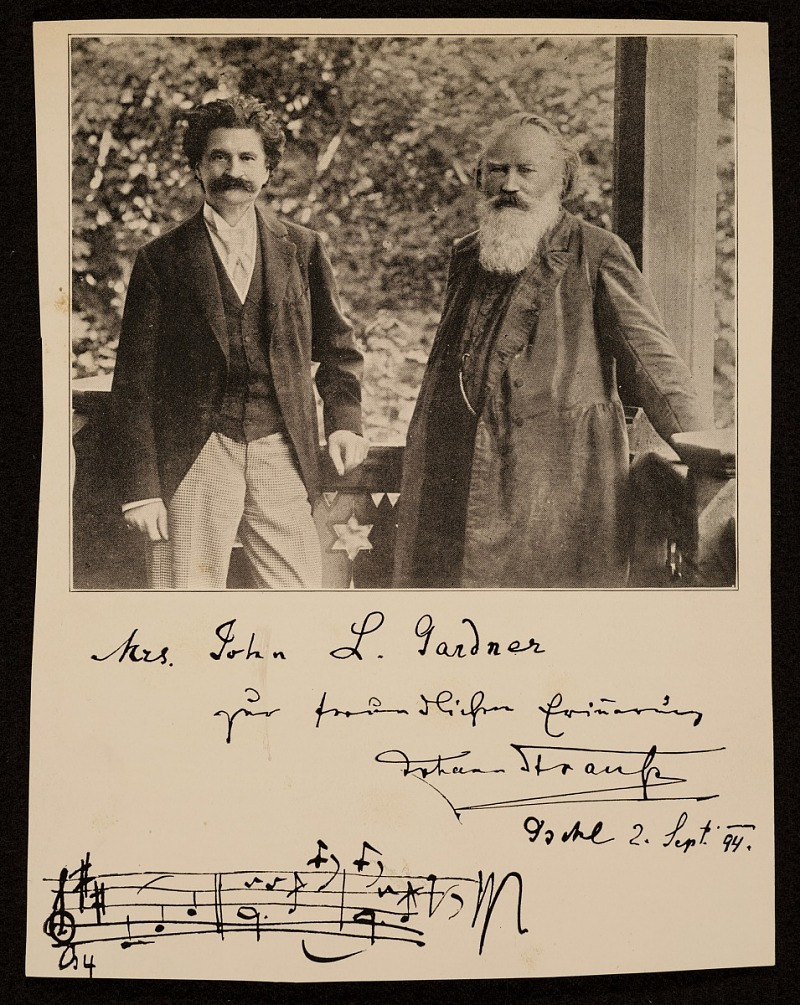 Mrs. John L. Gardner
zur freundlichen Erinnerung
Johann Strauß
Ischl 2. Sept. 94.